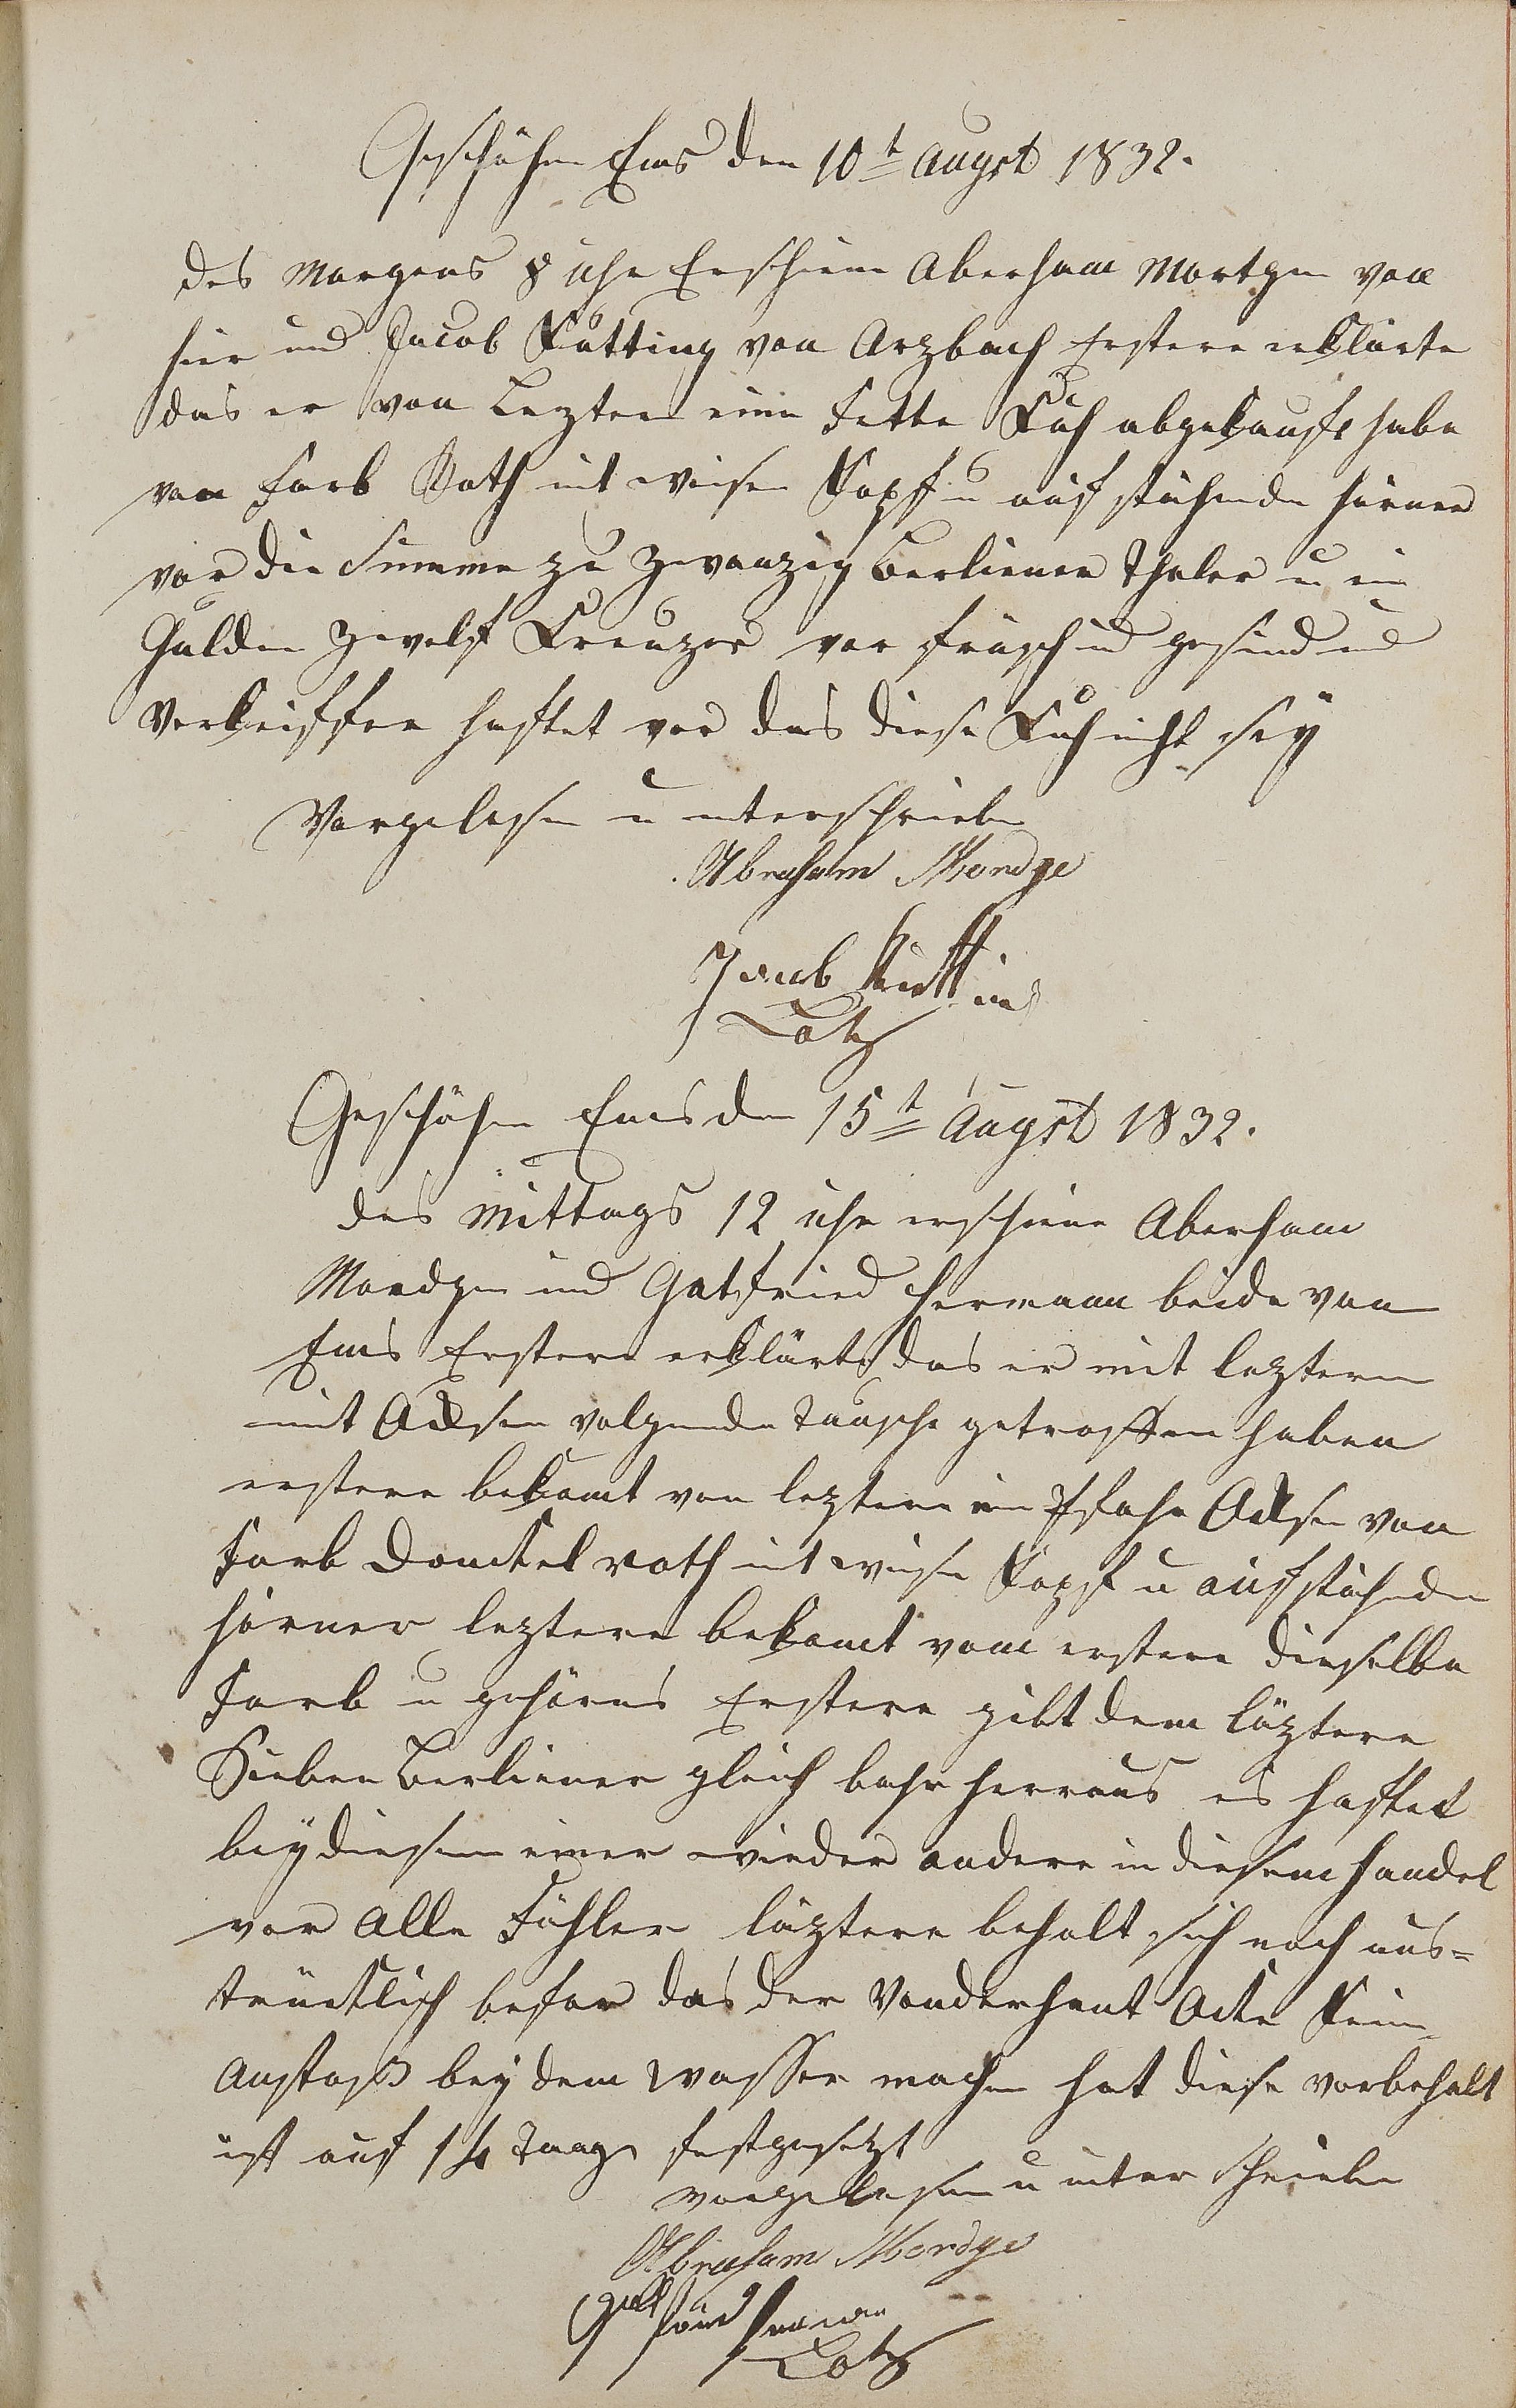 Geschähen Ems den 10t Augst 1832.
des Morgens 8 uhr Erschiene Aberham Mortgen von
hier und Jacob Kutting von Arzbach Erstere erklärte
das er von Leztere eine Fette Kuh abgekauft habe
von Farb Roth mit weisen Kopf u aufstehende hörner
vor die Summe zu Zwanzig Berliener Thaler u ein
Gulden Zwelf Kreuzer vor früsch und gesund und
Verkeiffer haftet vor das diese Kuh nicht sey
Vorgelesen u unterschrieben
Abraham Mordge
Jacob Kutting
Lotz
Geschähen Ems den 15t Augst 1832.
des Mittags 12 uhr erschiene Aberham
Mordgen und Gotfried Hermann beide von
Ems Erstere erklärte das er mit leztern
mit Ocksen volgende Tausche getroffen haben
erstere bekomt von leztere ein Ocksen von
Farb Donckel roth mit weise Kopf u aufstehende
hörner leztere bekomt vom erstere dieselbe
Farb u gehörns Erstere gibt dem läztere
Sieben Berliener gleich bahr herraus es haftet
bey diesem einer wieder andere in diesem handel
vor Alle Fähler läztere behalt sich noch aus=
trücklich befor das der Vonderhant Ockse Kein
Anstoß bey dem Wasser machen hat diese vorbehalt
ist auf 14 Taage festgesetzt
vorgelesen u unter schrieben
Abraham Mordge
Gottfried Hermann
Lotz